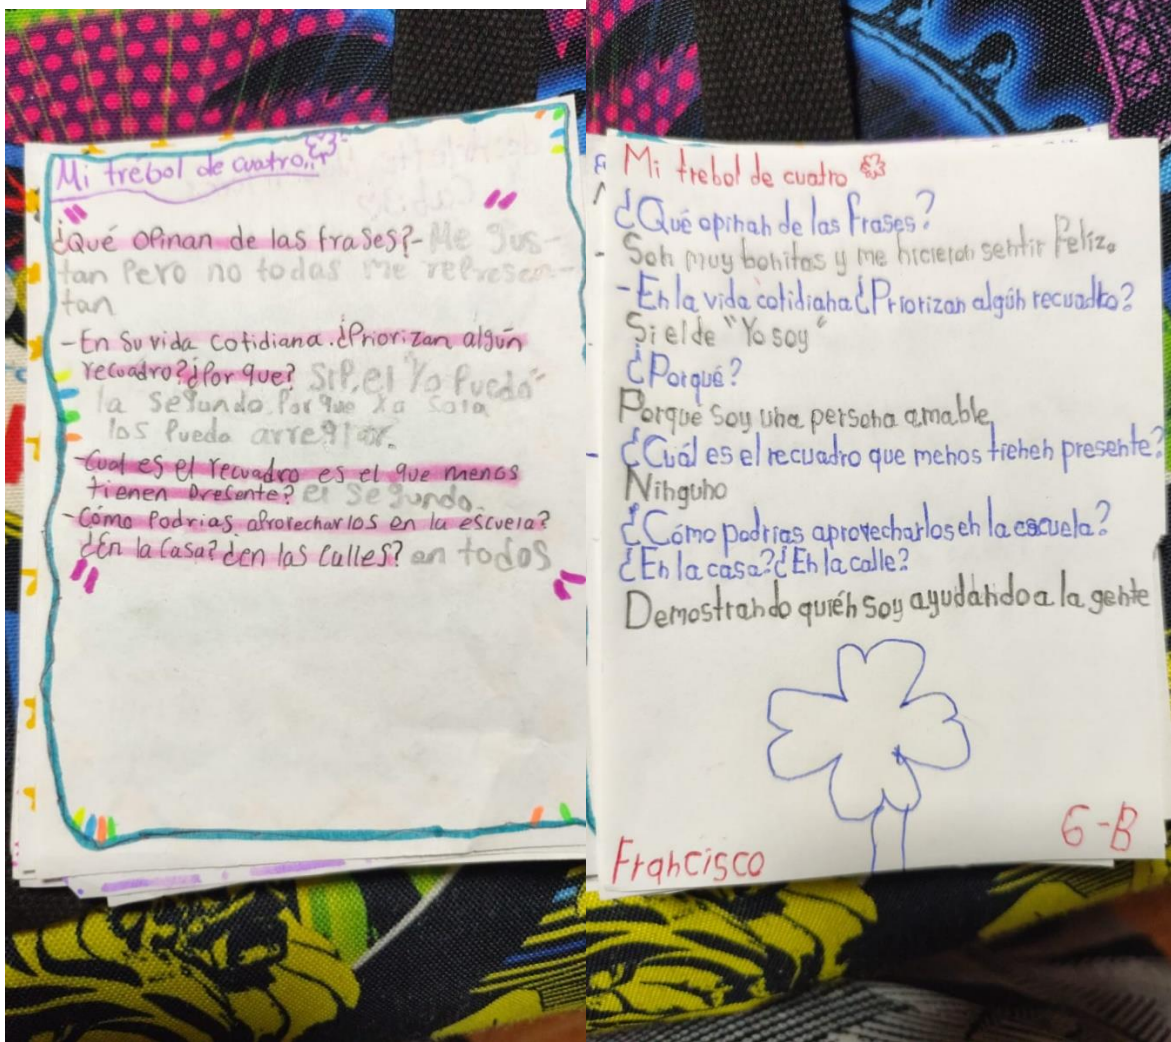 Mi trébol de cuatro..
"
"
¿Qué opinan de las frases?- Me gus-
tan pero no todas me represen-
tan
- En su vida cotidiana. ¿Priorizan algún
recuadro? ¿por que? Sip, el "Yo Puedo"
la segundo porque la cosa
los puedo arreglar.
- Cual es el recuadro es el que menos
tienen presente? el segundo.
- Cómo podrias aprovecharlos en la escuela?
¿En la casa? ¿en las calles? en todos
"
"
Mi trebol de cuatro
¿Qué opinan de las frases?
Son muy bonitas y me hicieron sentir feliz.
- En la vida cotidiana ¿Priorizan algún recuadro?
Si el de "Yo soy"
¿Porqué?
Porque soy una persona amable
¿Cuál es el recuadro que menos tienen presente?
Ninguno
¿Cómo podrias aprovecharlos en la escuela?
¿En la casa? ¿En la calle?
Demostrando quién soy ayudándo a la gente
Francisco
6-B